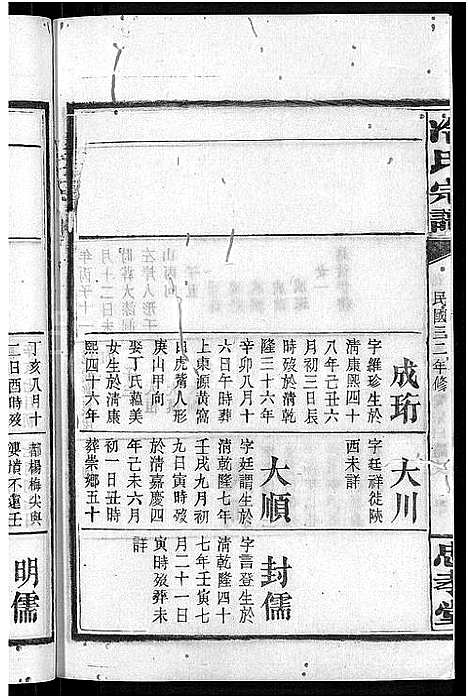 冷氏宗譜
民國三二年修
思孝堂
成珩
字維珍生於
清康熙四十
八年己丑六
月初三日辰
時歿於清乾
隆三十六年
辛卯八月十
六日午時葬
上東源黃窩
白虎畲人形
庚山甲向
娶丁氏藴美
女生於清康
熙四十六年
大川
字廷祥徙陝
西未詳
大順
字廷謂生於
清乾隆七年
壬戌九月初
九日寅時歿
於清嘉慶四
年己未六月
初一日丑時
葬崇鄉五十
封儒
字言登生於
清乾隆四十
七年壬寅七
月二十一日
寅時歿葬未
詳
丁亥八月十
二日酉時歿
都楊梅尖與
嘍墳不遠壬
明儒